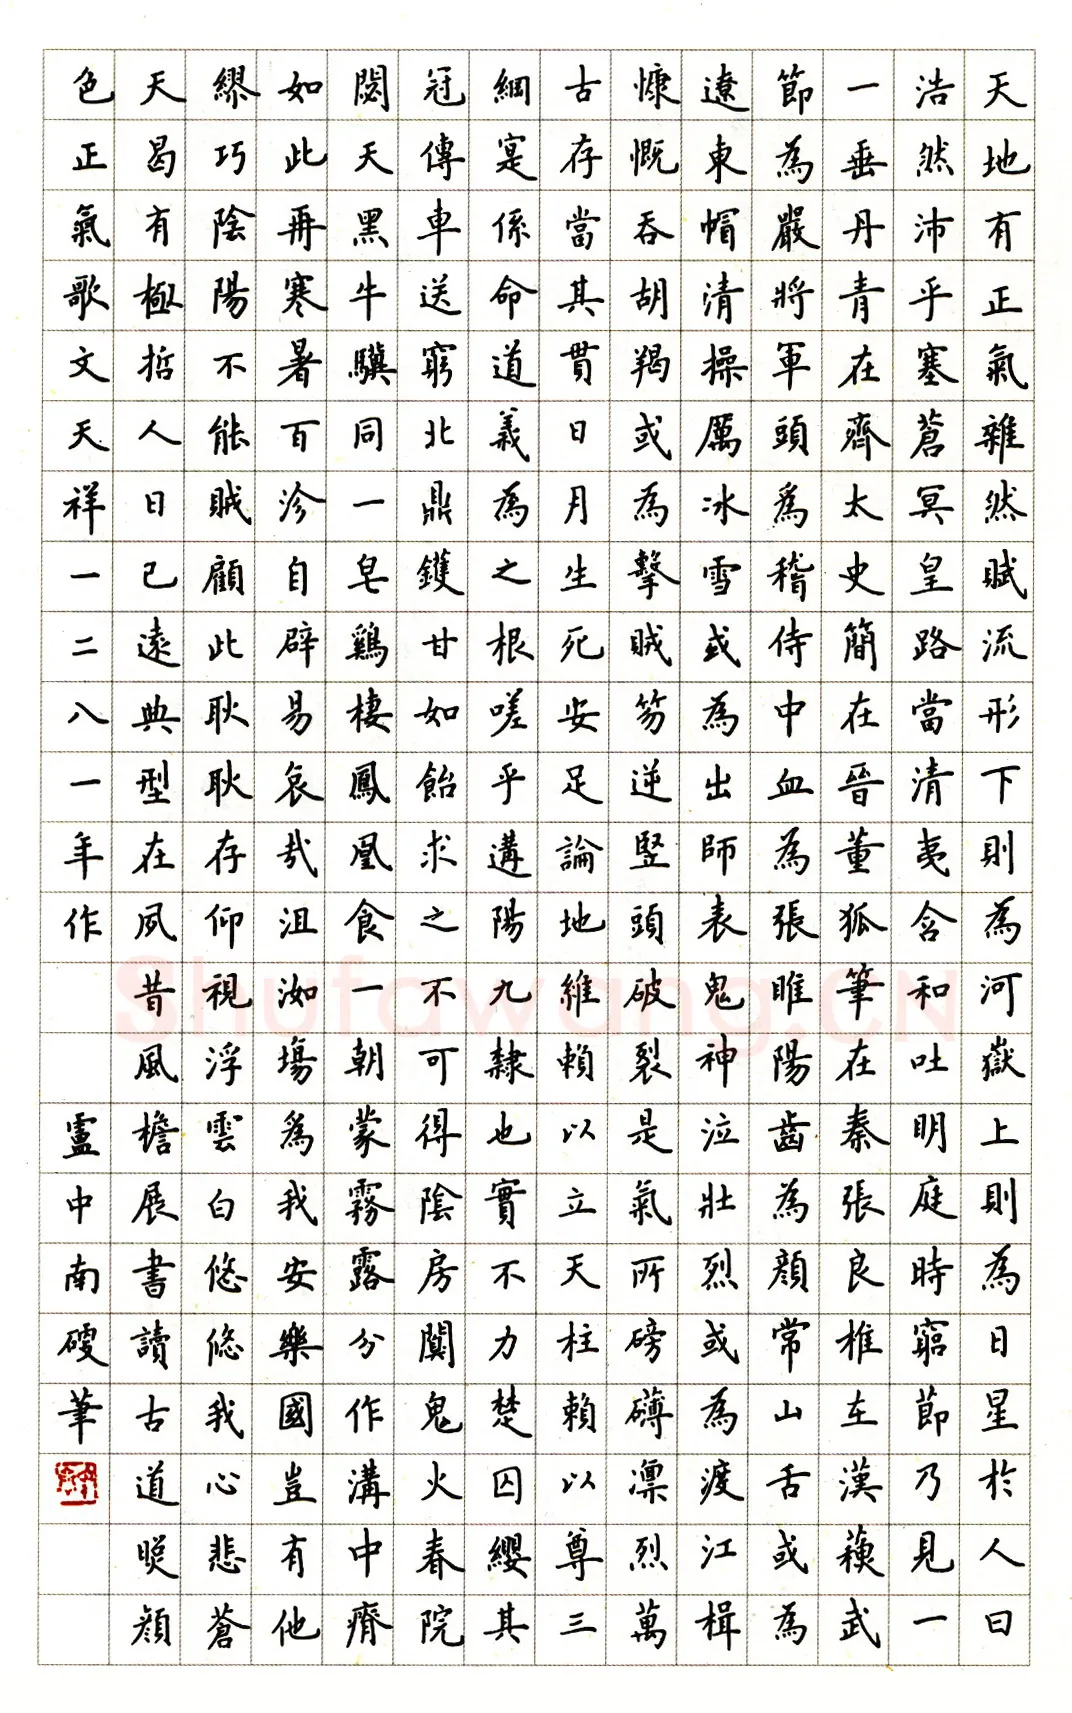 天地有正氣雜然賦流形下則為河嶽上則為日星於人曰
浩然沛乎塞蒼冥皇路當清夷含和吐明庭時窮節乃見一
一垂丹青在齊太史簡在晉董狐筆在秦張良椎在漢蘓武
節為嚴將軍頭為嵇侍中血為張睢陽齒為顏常山舌或為
遼東帽清操厲冰雪或為出師表鬼神泣壯烈或為渡江楫
慷慨吞胡羯或為擊賊笏逆豎頭破裂是氣所磅礴凜烈萬
古存當其貫日月生死安足論地維賴以立天柱賴以尊三
綱寔係命道義為之根嗟乎遘陽九隸也實不力楚囚纓其
冠傳車送窮北鼎鑊甘如飴求之不可得陰房闃鬼火春院
閟天黑牛驥同一皂鷄棲鳳凰食一朝蒙霧露分作溝中瘠
如此再寒暑百沴自辟易哀哉沮洳場為我安樂國豈有他
繆巧陰陽不能賊顧此耿耿存仰視浮雲白悠悠我心悲蒼
天曷有極哲人日已遠典型在夙昔風檐展書讀古道照顏
色正氣歌文天祥一二八一年作盧中南硬筆
Shufawang.CN